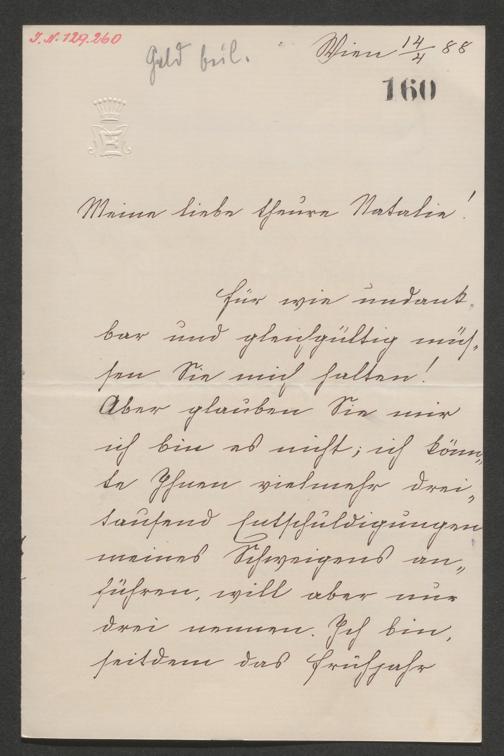 I. N. 129.260
Geld beil.
Wien 14/4 88
160
Meine liebe theure Natalie!
Für wie undank-
bar und gleichgültig müs-
sen Sie mich halten!
Aber glauben Sie mir
ich bin es nicht; ich könn-
te Ihnen vielmehr drei-
tausend Entschuldigungen
meines Schweigens an-
führen, will aber nur
drei nennen. Ich bin,
seitdem das Frühjahr